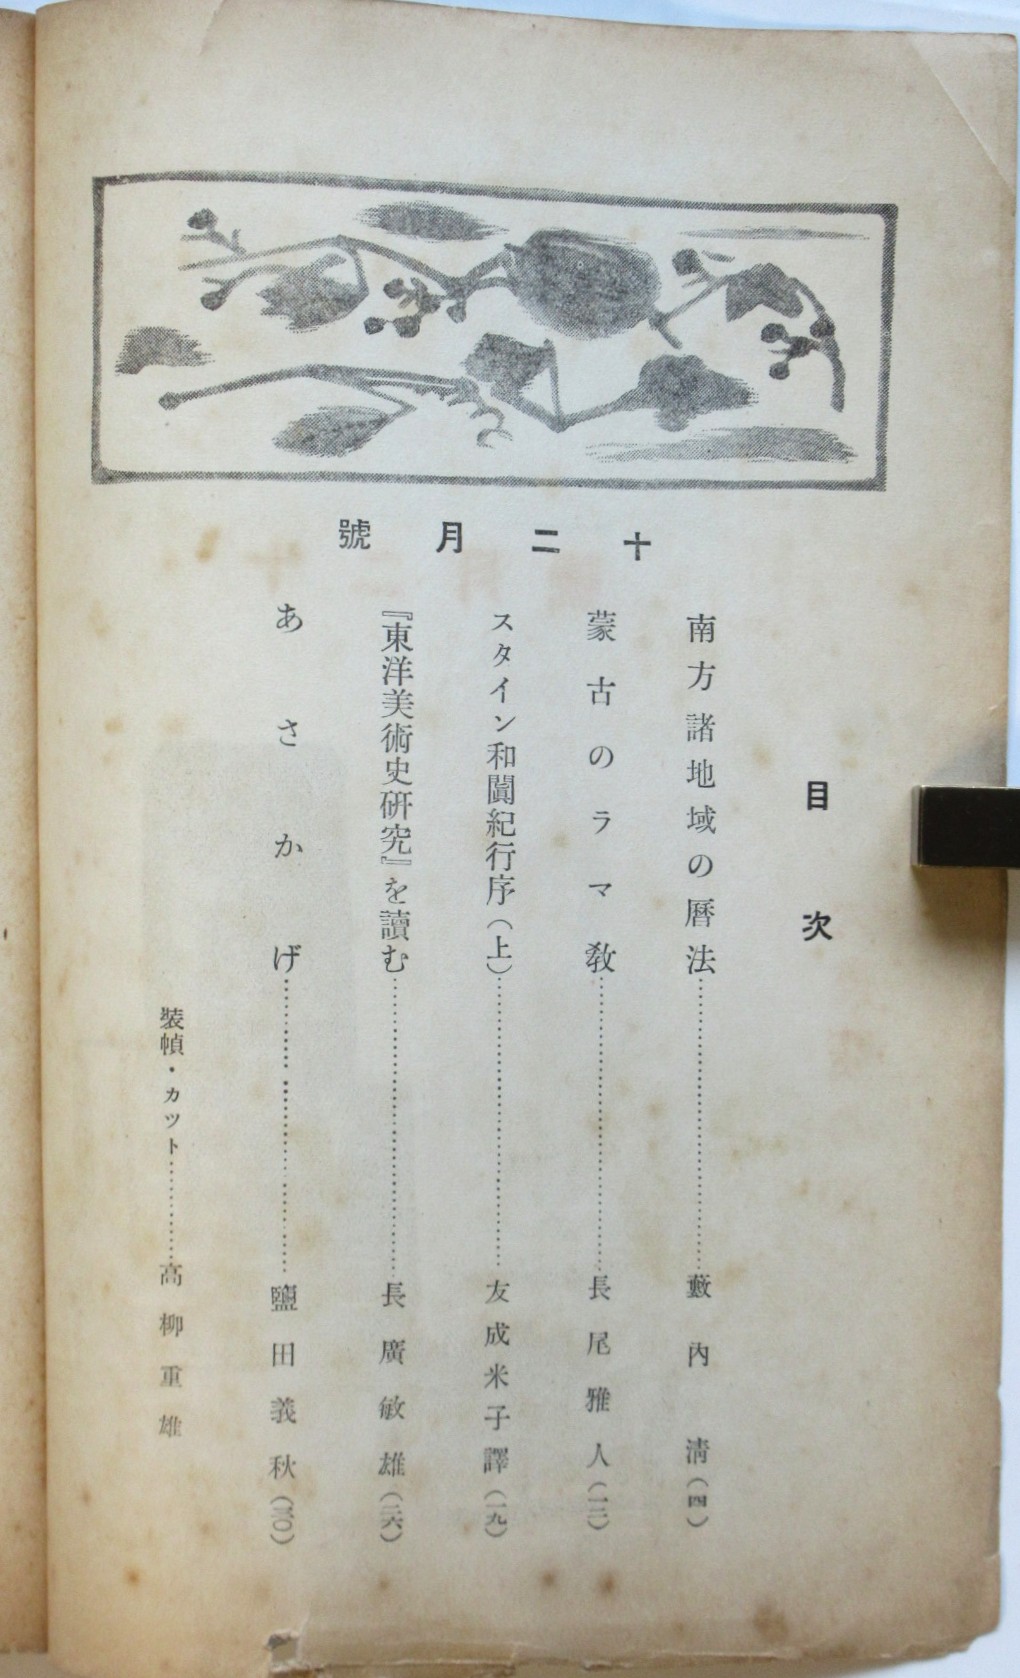 十二月號
目次
南方諸地域の曆法…………藪內淸(四)
蒙古のラマ敎…………長尾雅人(一二)
スタイン和闐紀行序(上)…………友成米子譯(一九)
『東洋美術史研究』を讀む…………長廣敏雄(二六)
あさかげ…………鹽田義秋(三〇)
裝幀・カツト…………高柳重雄